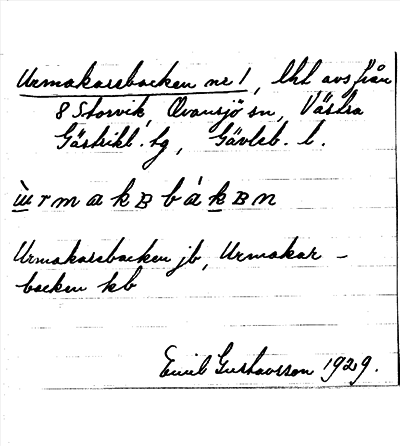 Urmakarebacken nr 1, lht avs från
8 Storvik, Ovansjö sn, Västra
Gästrikl. tg, Gävleb. l.
ùrmakʙbákʙn
Urmakarebacken jb, Urmakar-
backen kb
Emil Gustavsson 1929.